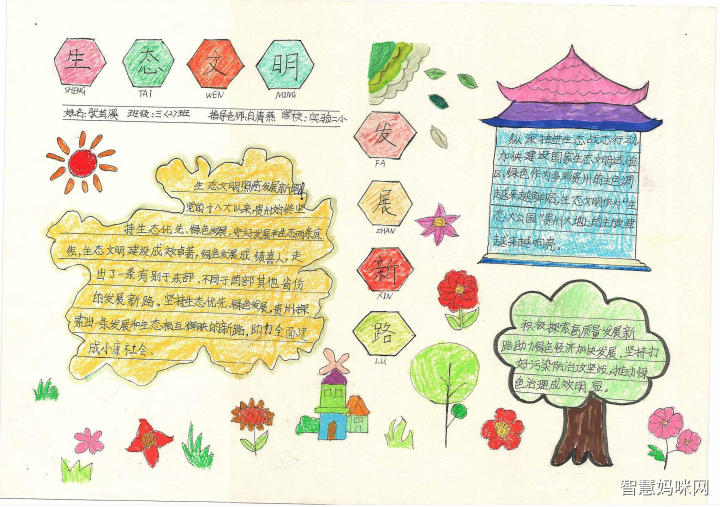 生 态 文 明
SHENG TAI WEN MING
姓名:张芸溪 班级:三(2)班 指导老师:白清燕 学校:实验一小
发
FA
展
ZHAN
新
XIN
路
LU
生态文明照亮发展新路!
党的十八大以来,贵州始终坚
持生态优先、绿色发展,守好发展和生态两条底
线,生态文明建设成效卓著,绿色发展成绩喜人,走
出了一条有别于东部、不同于西部其他省份
的发展新路。坚持生态优先、绿色发展,贵州探
索出一条发展和生态相互辉映的新路,助力全面建
成小康社会。
纵深推进生态战态行动
加快建设国家生态文明试验
区,绿色作为多彩贵州的主色调
越来越鲜亮,生态文明作为“生
态大公园”贵州大地上的主旋律
越来越响亮。
积极探索高质量发展新
路助力绿色经济加快发展,坚持打
好污染防治攻坚战,推动绿
色治理成效明显。
智慧妈咪网